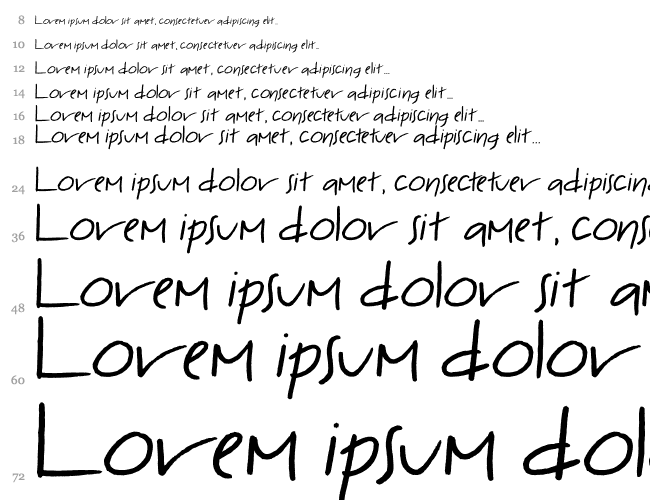 8 Lorem ipsum dolor sit amet, consectetuer adipiscing elit...
10 Lorem ipsum dolor sit amet, consectetuer adipiscing elit...
12 Lorem ipsum dolor sit amet, consectetuer adipiscing elit...
14 Lorem ipsum dolor sit amet, consectetuer adipiscing elit...
16 Lorem ipsum dolor sit amet, consectetuer adipiscing elit...
18 Lorem ipsum dolor sit amet, consectetuer adipiscing elit...
24 Lorem ipsum dolor sit amet, consectetuer adipiscin
36 Lorem ipsum dolor sit amet, cons
48 Lorem ipsum dolor sit am
60 Lorem ipsum dolor
72 Lorem ipsum dol